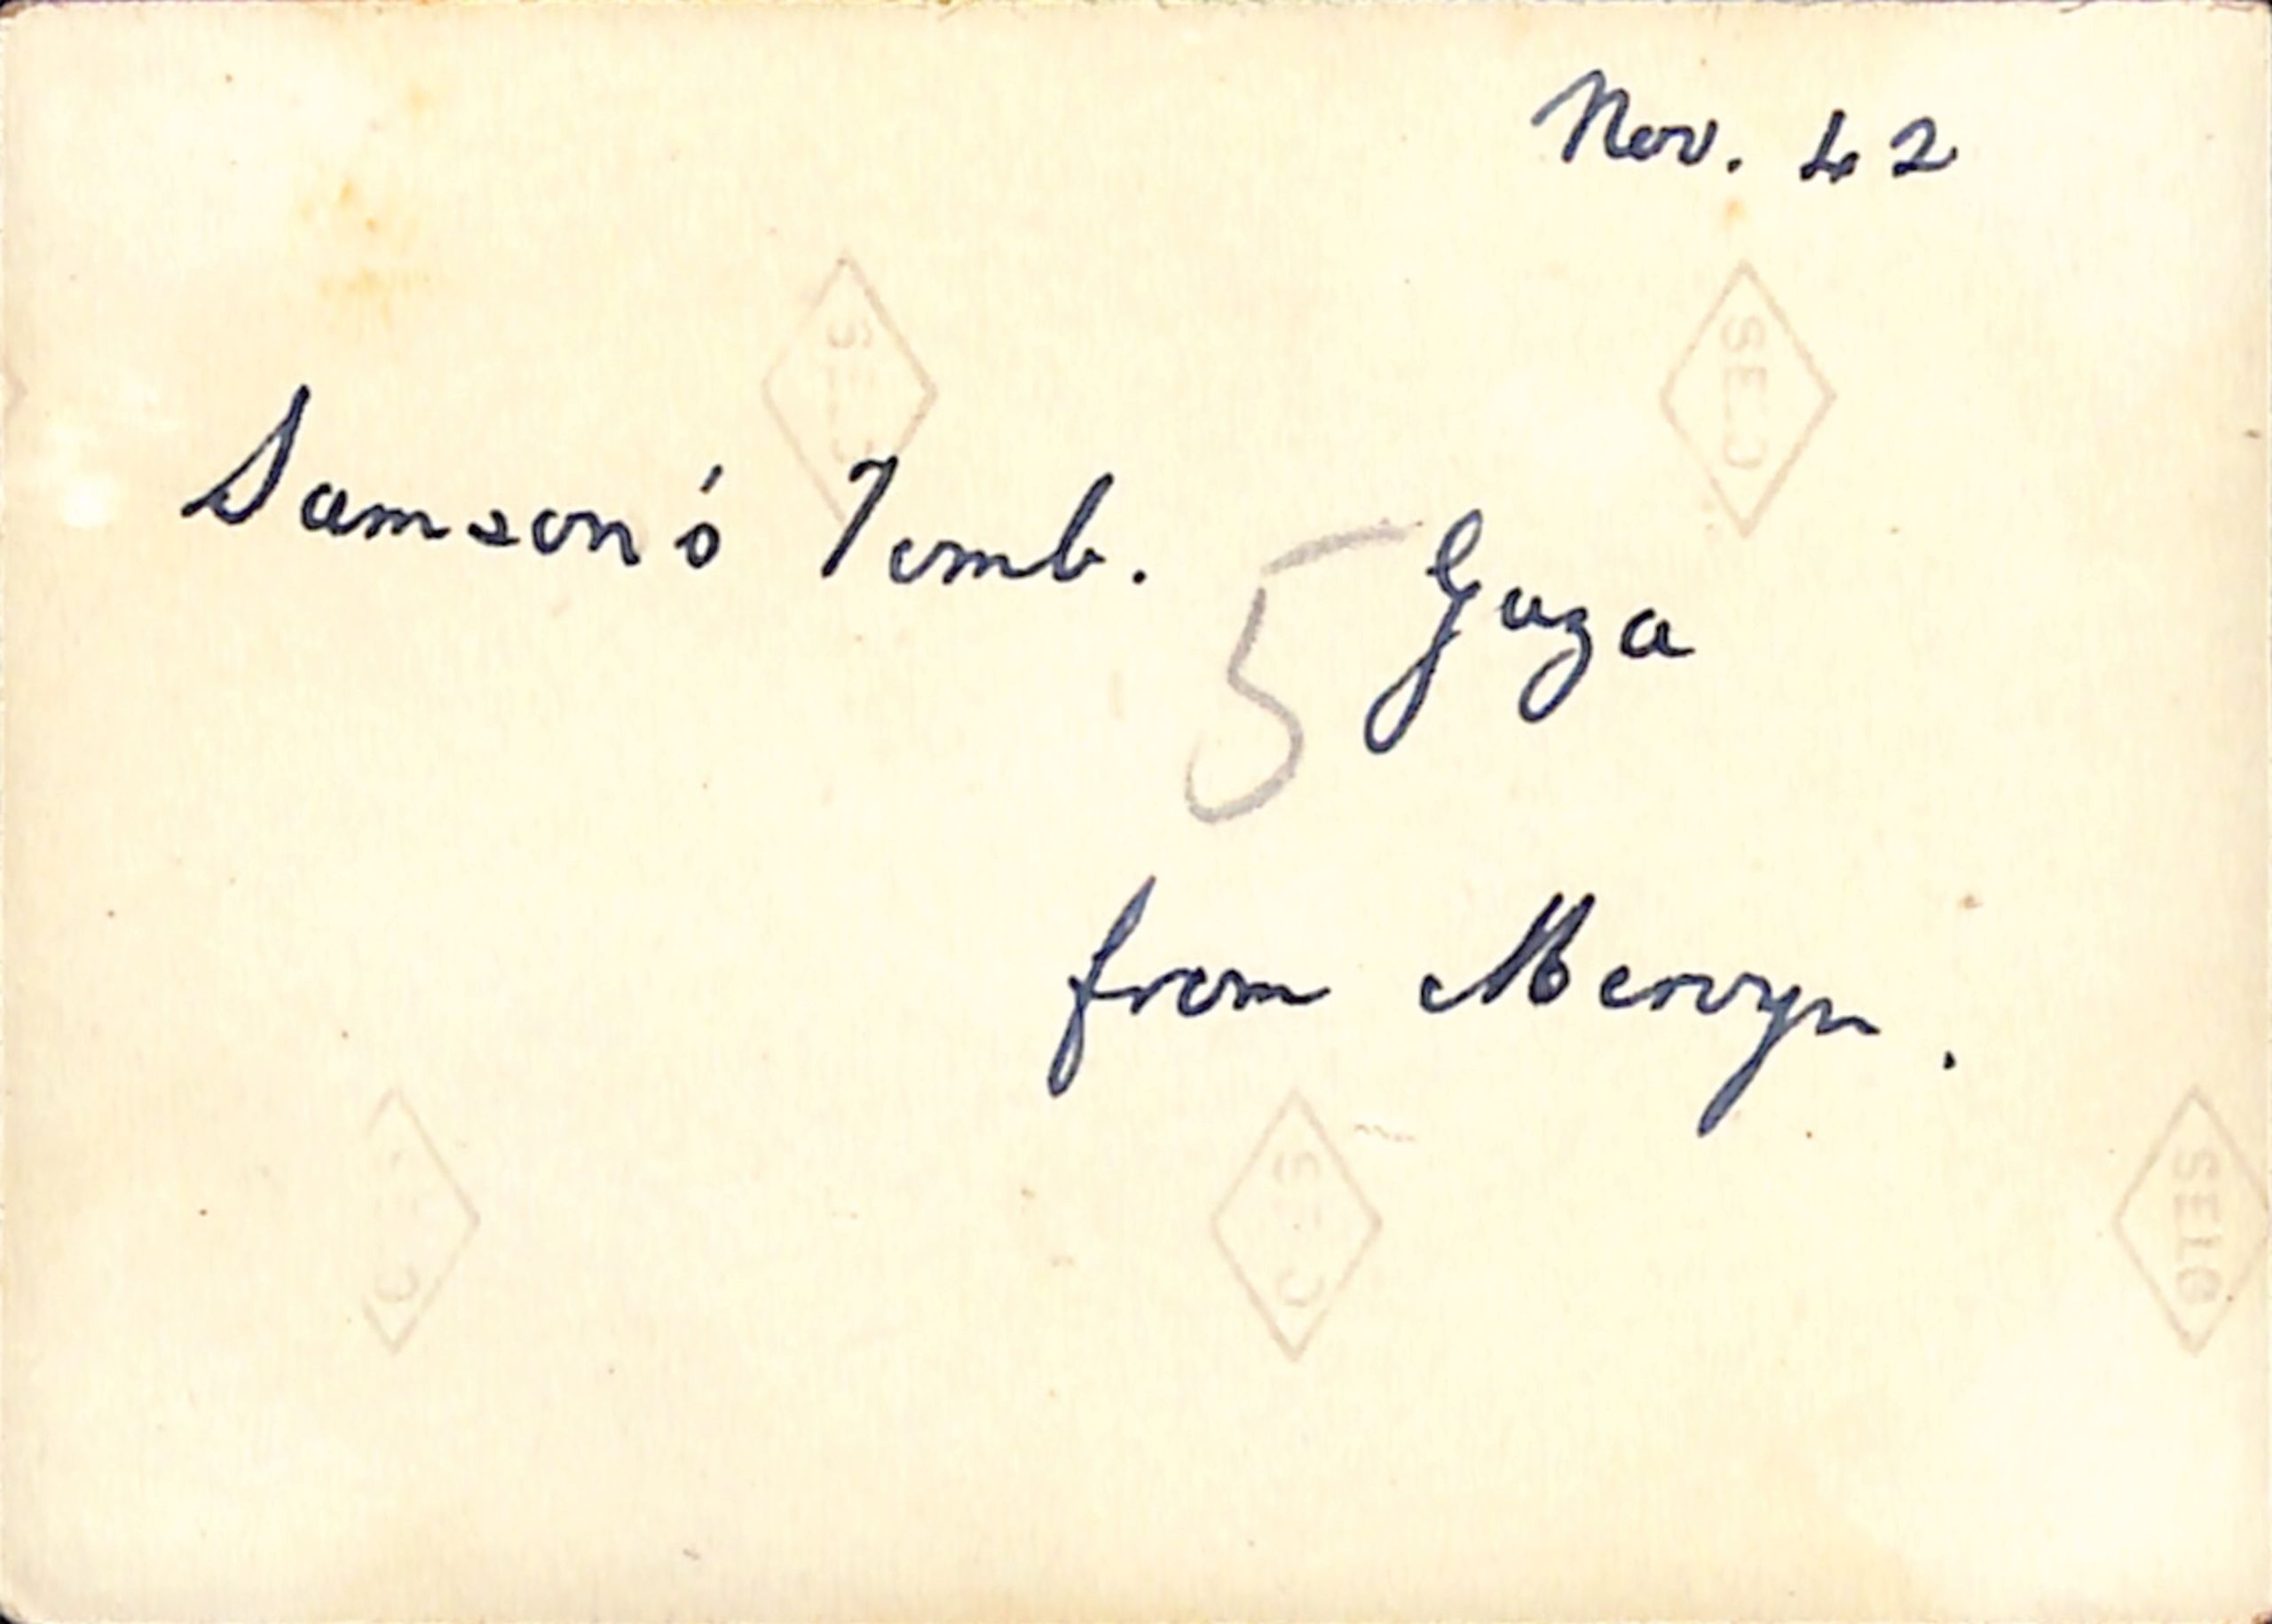 Nov. 42
SELO
SELO
Samson's Tomb. Gaza
5
from Mervyn.
SELO